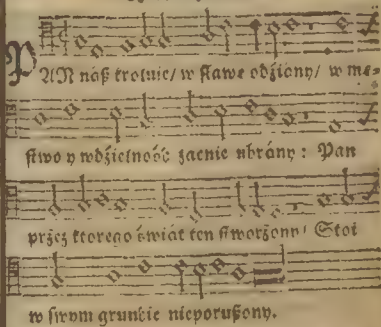 PAN náß kroluie/ w sławę obźiony/ w mę-
stwo y wdźielność zacnie vbrány : Pan
przez ktorego świát ten stworzony/ Stoi
w swym grunćie nieporußony.